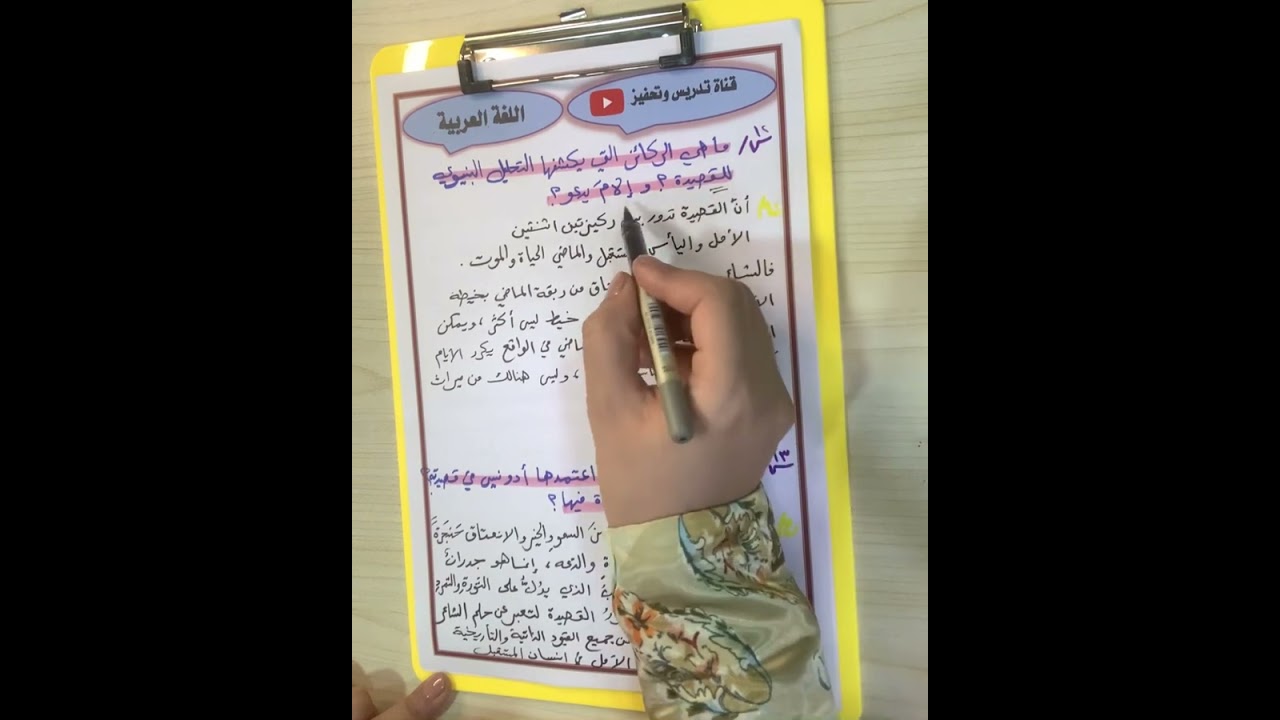 قناة تدريس وتحفيز
اللغة العربية
س١٢/ ما هي الركائز التي يكشفها التحليل البنيوي
للقصيدة؟ و إلامَ يدعو؟
أنّ القصيدة تدور ركيزتين اثنتين
الأمل واليأس والماضي الحياة والموت .
من ربقة الماضي بخيطه
خيط ليس أكثر ، ويمكن
في الواقع يكرر الايام
، وليس هنالك من ميراث
س١٣
اعتمدها أدونيس في قصيدته؟
فيها؟
السمو والخير والانعتاق حَنجَرَةً
والدعه ، إنما هو جدرانُ
الذي يدُلُّ على الثورة والتمرد
القصيدة لتعبر عن حلم الشاعر
جميع القيود الذاتية والتأريخية
الأمل في انسان المستقبل